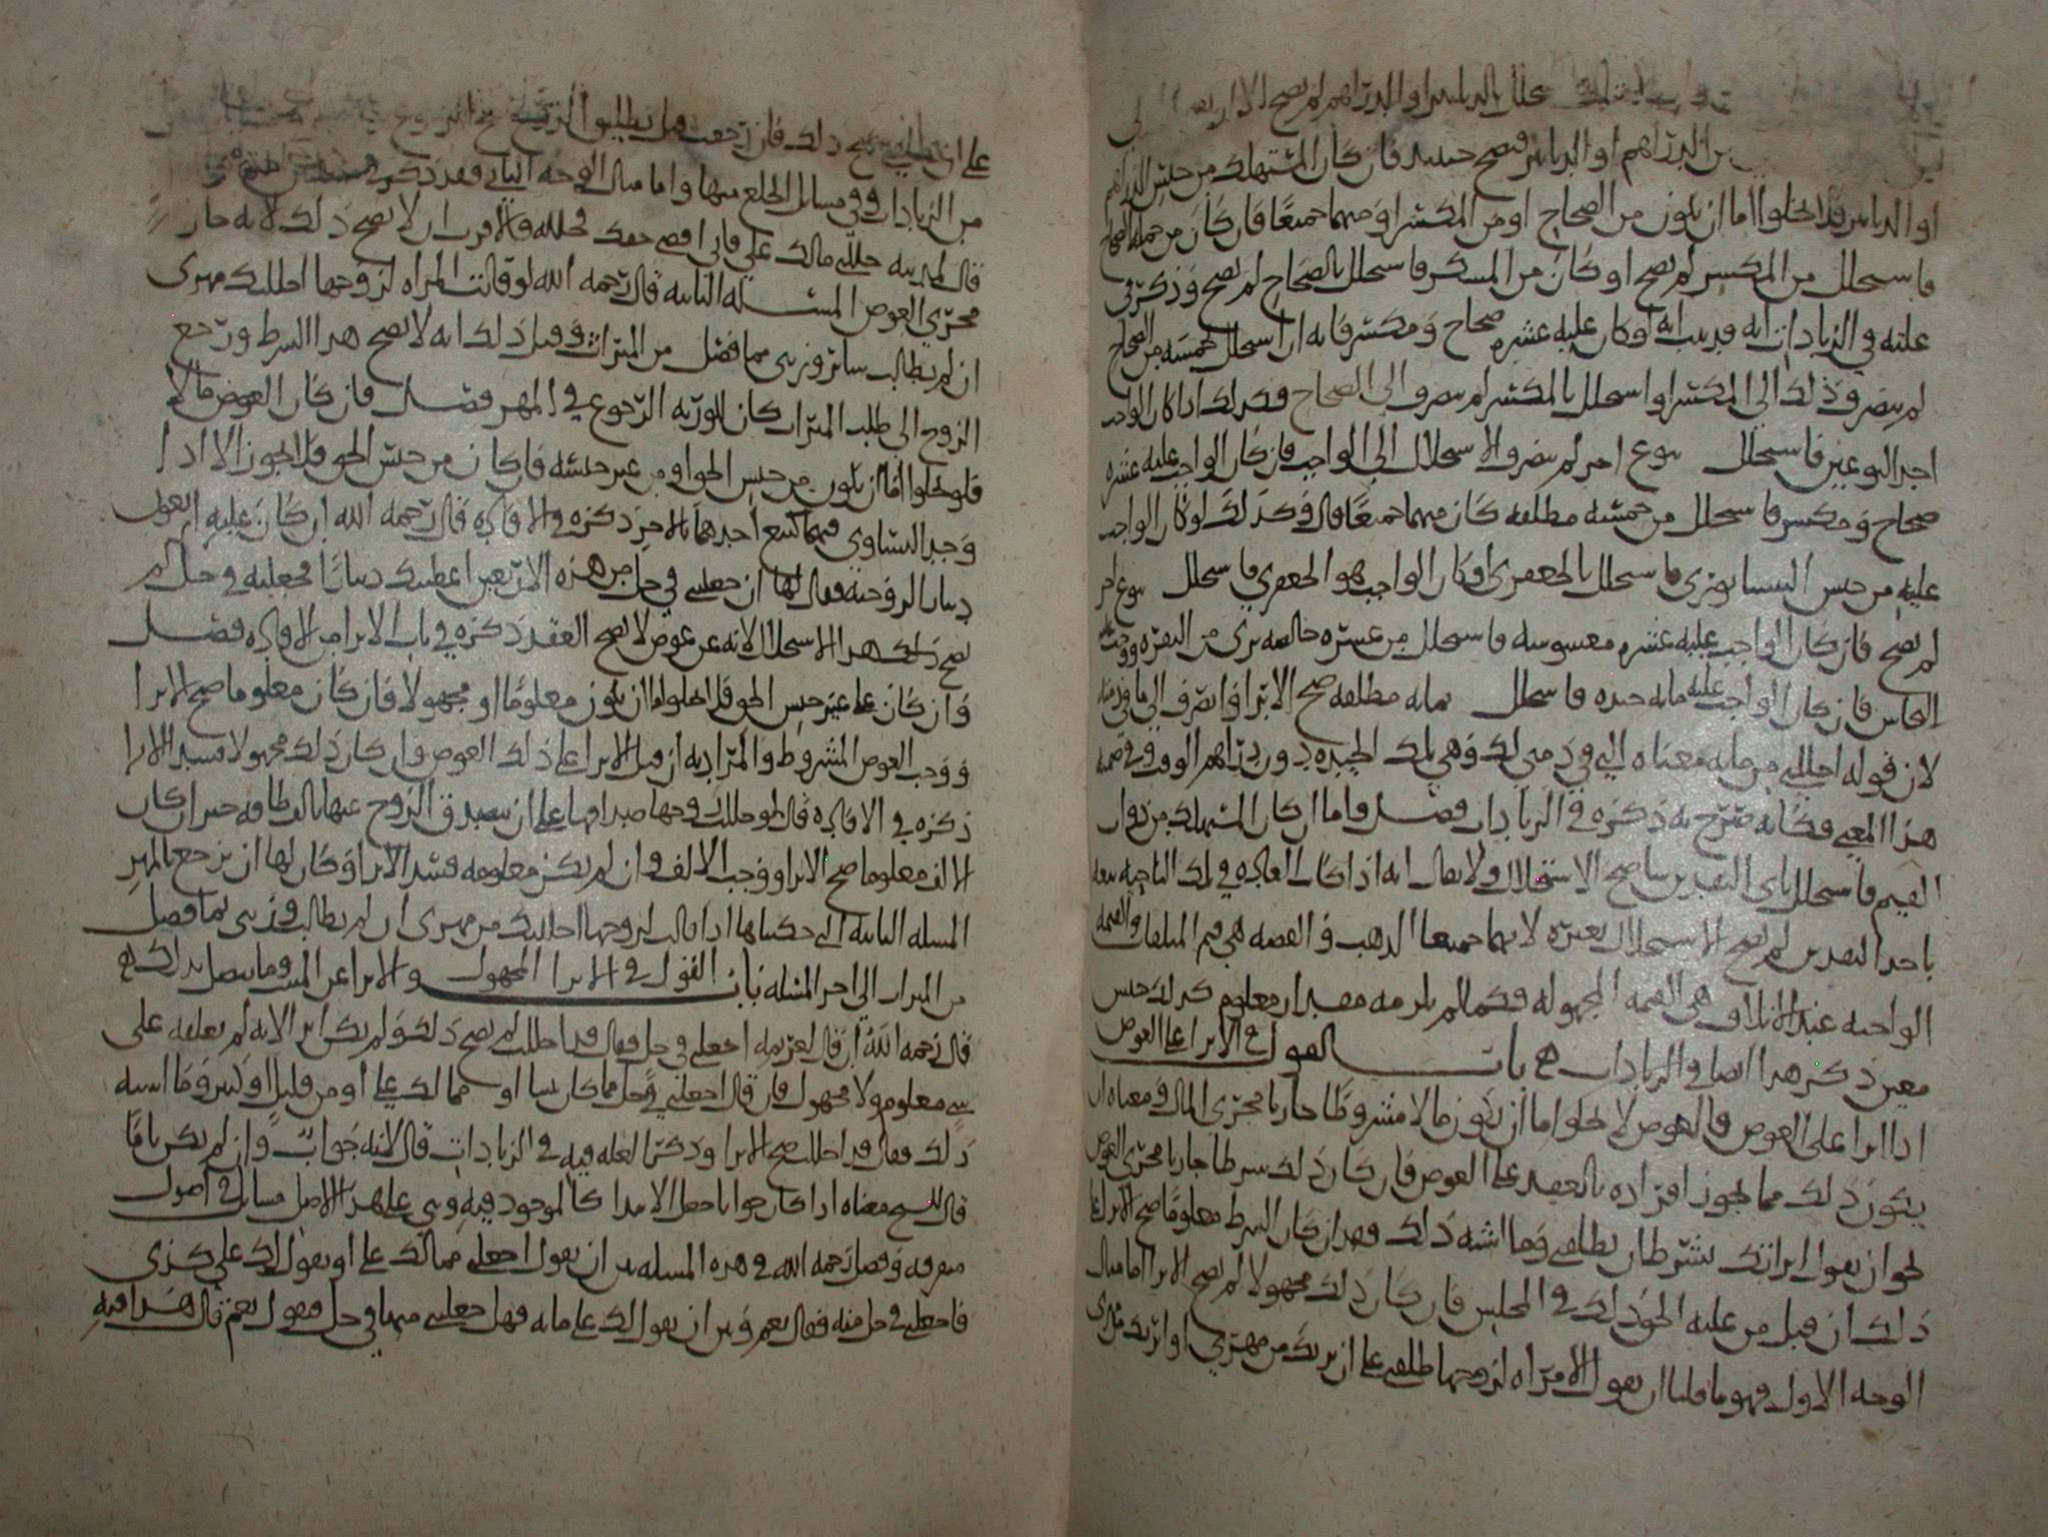 يستحلل بالدنانير او الدراهم لم يصح الا ان
من الدراهم او الدنانير فيصح حينئذ فان كان المستهلك من جنس الدراهم
او الدنانير فلا يخلوا اما ان يكون من الصحاح او من المكسر او منهما جميعًا فان كان من جملة الصحاح
فاستحلل من المكسر لم يصح او كان من المكسر فاستحلل بالصحاح لم يصح وذكر في
عليه في الزيادات انه او كان عليه عشرة صحاح ومكسر فانه ان استحلل خمسة من الصحاح
لم ينصرف ذلك الى المكسر او استحلل بالمكسر لم ينصرف الى الصحاح فكذلك اذا كان الواجب
احد النوعين فاستحلل بنوع اخر لم ينصرف الاستحلال الى الواجب فان كان الواجب عليه عشرة
صحاح ومكسر فاستحلل من خمسة مطلقه كان منهما جميعًا قال وكذلك لو كان الواجب
عليه من جنس النيسابوري فاستحلل بالجعفري او كان الواجب هو الجعفري فاستحلل بنوع اخر
لم يصح فان كان الواجب عليه عشرة مغشوشه فاستحلل من عشرة خالصه برى من النقره ووجب
النحاس فان كان الواجب عليه مايه جيده فاستحلل بمايه مطلقه صح الابرا وانصرف الى ما في ذمته
لان قوله احللني من مايه معناه التي في ذمتي لك وهي تلك الجيده دون دراهم الوقت وفي ضمنه
هذا المعنى فكانه صرح به ذكره في الزيادات فصل واما ان كان المستهلك من ذوات
القيم فاستحلل باي النقدين شا صح الاستحلال ولا يقال انه اذا كانت العادة في تلك الناحيه
باحد النقدين لم يصح الاستحلال بغيره لانهما جميعا الذهب والفضه هي قيم المتلفات والقيمه
الواجبه عند الاتلاف هي القيمه المجهوله فكما لم يلزمه مقدار معلوم كذلك جنس
معين ذكر هذا ايضا في الزيادات باب القول في الابرا على العوض
اذا ابرا على العوض فالعوض لا يخلوا اما ان يكون مالا مشروطًا جاريا مجرى المال ومعناه ان
يكون ذلك مما يجوز افراده بالعقد على العوض فان كان ذلك شرطا جاريا مجرى العوض
نحو ان يقول ابراتك بشرط ان تطلقني وما اشبه ذلك فهذا ان كان الشرط معلومًا صح الابرا اذا
ذلك ان قبل من عليه الحق ذلك في المجلس فان كان ذلك مجهولا لم يصح الابرا اما مثال
الوجه الاول فهو ما قلنا ان يقول الامراه لزوجها طلقني على ان برئت من مهري او ابرئك من مهري
على ان صح ذلك فان رجعت قبل تطليق الزوج صح الرجوع
من الزيادات وفي مسائل الخلع منها واما مثال الوجه الثاني فقد ذكر
قال لمدينه حللني مالك علي فان اقضي حقك فحلله فالاقرب ان لا يصح ذلك لانه جار
مجرى العوض المسئله الثانيه قال رحمه الله لو قالت المراه لزوجها احللتك مهري
ان لم يطالب سائر ورثتي مما فضل من الميراث وقبل ذلك انه لا يصح هذا الشرط ورجع
الزوج الى طلب الميراث كان للورثه الرجوع في المهر فصل فان كان العوض مالا
فلا يخلوا اما ان يكون من جنس الحق او من غير جنسه فان كان من جنس الحق فلا يجوز الا اذا
وجد التساوي فيهما كبيع احدهما بالاخر ذكره في الافاده قال رحمه الله ان كان عليه اربعون
دينارا لزوجته فقال لها ان جعلتني في حل من هذه الاربعين اعطيتك دينارًا فجعلته في حل لم
يصح ذلك هذا الاستحلال لانه عن عوض لا يصح العقد ذكره في باب الابرا من الافاده فصل
وان كان على غير جنس الحق فلا يخلوا اما ان يكون معلومًا او مجهولا فان كان معلوما صح الابرا
ووجب العوض المشروط والمراد به ان قبل الابرا على ذلك العوض وان كان ذلك مجهولا فسد الابرا
ذكره في الافاده قال لو حللت زوجها صداقها على ان يتصدق الزوج عنها بالف طاقه خبز ان كان
الالف معلوما صح الابرا ووجب الالف وان لم يكن معلومه فسد الابرا وكان لها ان ترجع بالمهر
المسله الثانيه التي حكيناها اذا قالت لزوجها احللتك من مهري ان لم يطالب ورثتي بما فضل
من الميراث الى اخر المسله باب القول في الابرا المجهول والابرا عن الميت وما يتصل بذلك
قال رحمه الله ان قال لغريمه اجعلني في حل فقال قد احللت لم يصح ذلك ولم يكن ابرا لانه لم يعلقه على
شي معلوم ولا مجهول فان قال اجعلني في حل مما كان بيننا او مما لك علي او من قليل او كثير وما اشبه
ذلك فقال قد احللت صح الابرا وذكر العله فيه في الزيادات قال لانه جواب وان لم يكن تامًا
قال الشيخ معناه اذا كان جوابا جعل الابتدا كالموجود فيه وبني على هذا الاصل مسائل في اصول
متفرقه وفصل رحمه الله في هذه المسله بين ان يقول اجعلني مما لك علي او يقول لك علي كذى
فاجعلني في حل منه فقال نعم وبين ان يقول لك علي مايه فهل جعلتني منها في حل فيقول نعم قال هذا فيه